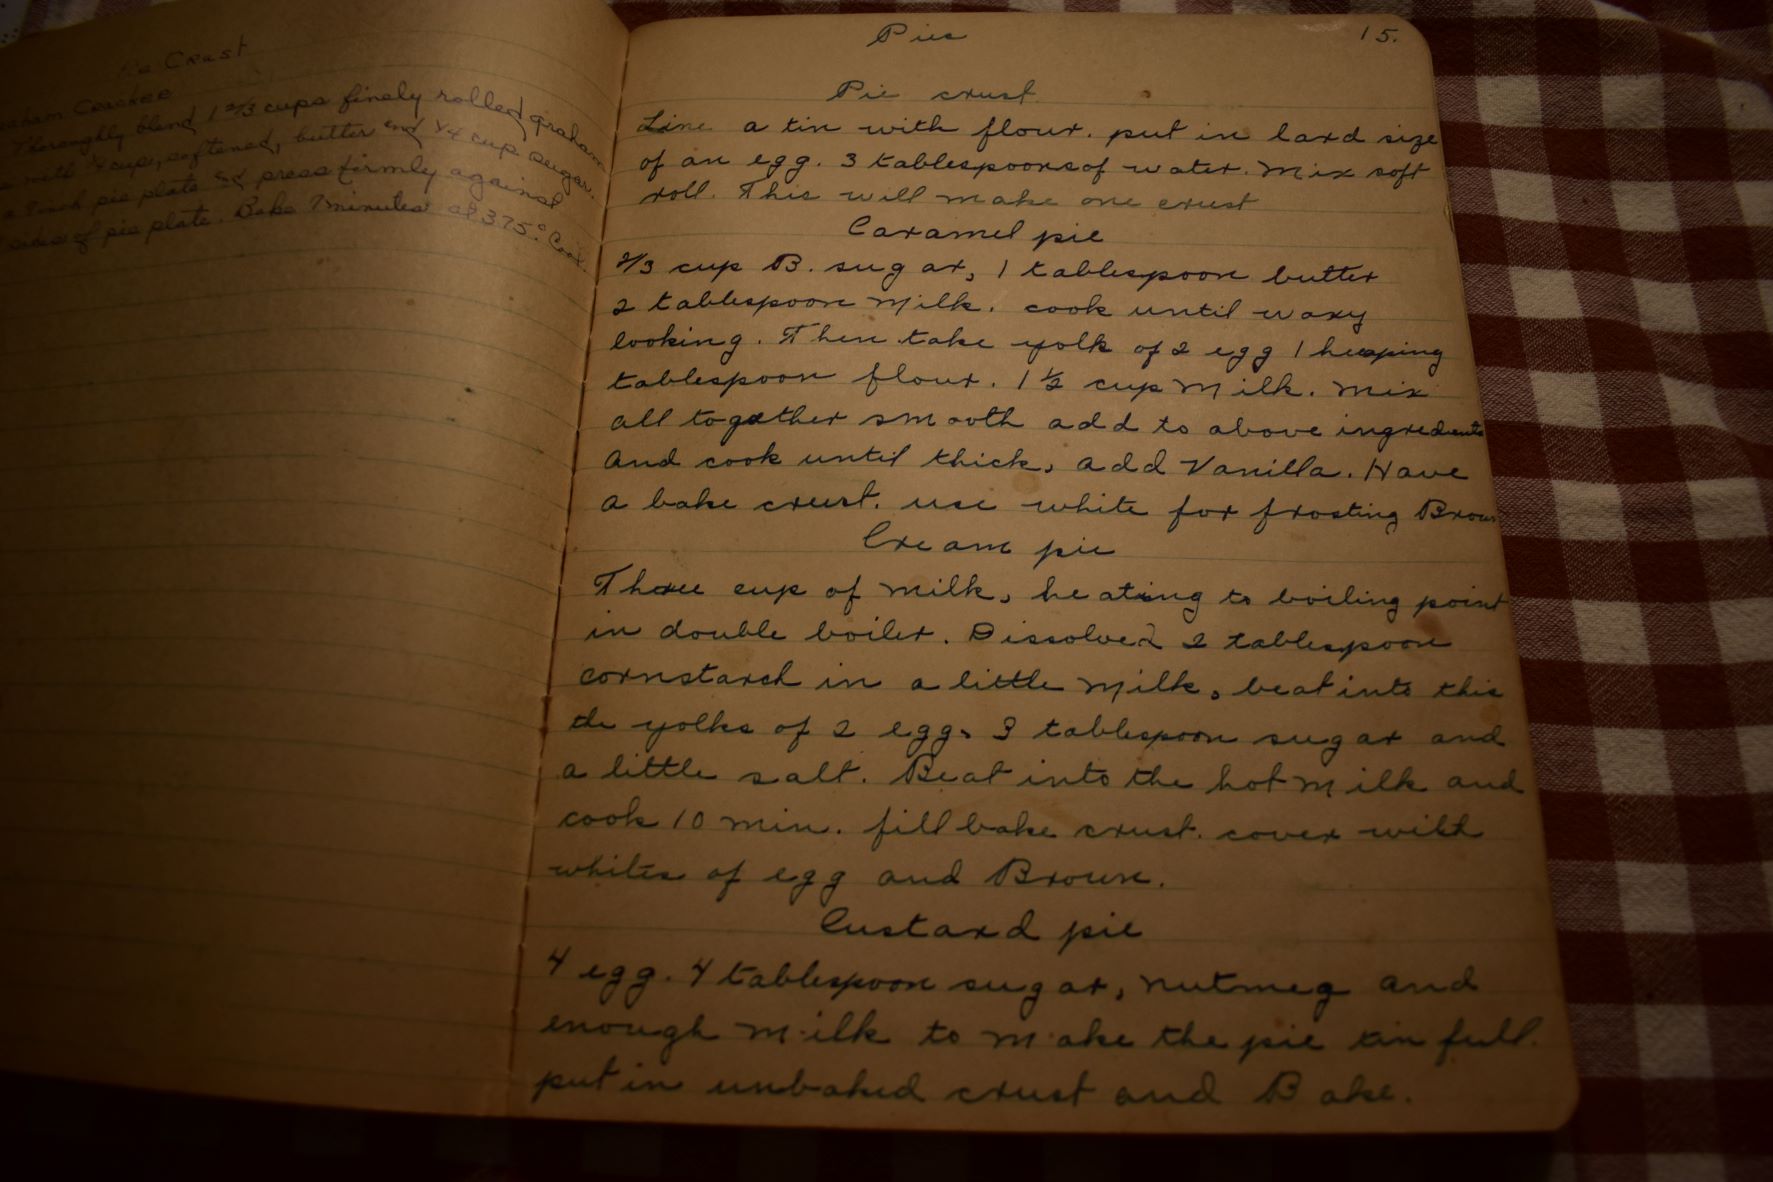 Pie Crust
Graham Cracker
Thoroughly blend 1 2/3 cups finely rolled graham
with 1/4 cup, softened, butter and 1/4 cup sugar.
9 inch pie plate and press firmly against
sides of pie plate. Bake 7 minutes at 375°. Cool.
Pies
15.
Pie crust
Line a tin with flour. put in lard size
of an egg. 3 tablespoons of water. Mix soft
roll. This will make one crust
Caramel pie
2/3 cup B. sugar, 1 tablespoon butter
2 tablespoon Milk. cook until waxy
looking. Then take yolk of 2 egg 1 heaping
tablespoon flour. 1 1/2 cup Milk. Mix
all together smooth add to above ingredients
And cook until thick, add Vanilla. Have
a bake crust. use white for frosting Brown
Cream pie
Three cup of Milk, heating to boiling point
in double boiler. Dissolved 2 tablespoon
cornstarch in a little Milk, beat into this
the yolks of 2 egg, 3 tablespoon sugar and
a little salt. Beat into the hot Milk and
cook 10 min. fill bake crust. cover with
whites of egg and Brown.
Custard pie
4 egg. 4 tablespoon sugar, nutmeg and
enough Milk to Make the pie tin full.
put in unbaked crust and Bake.